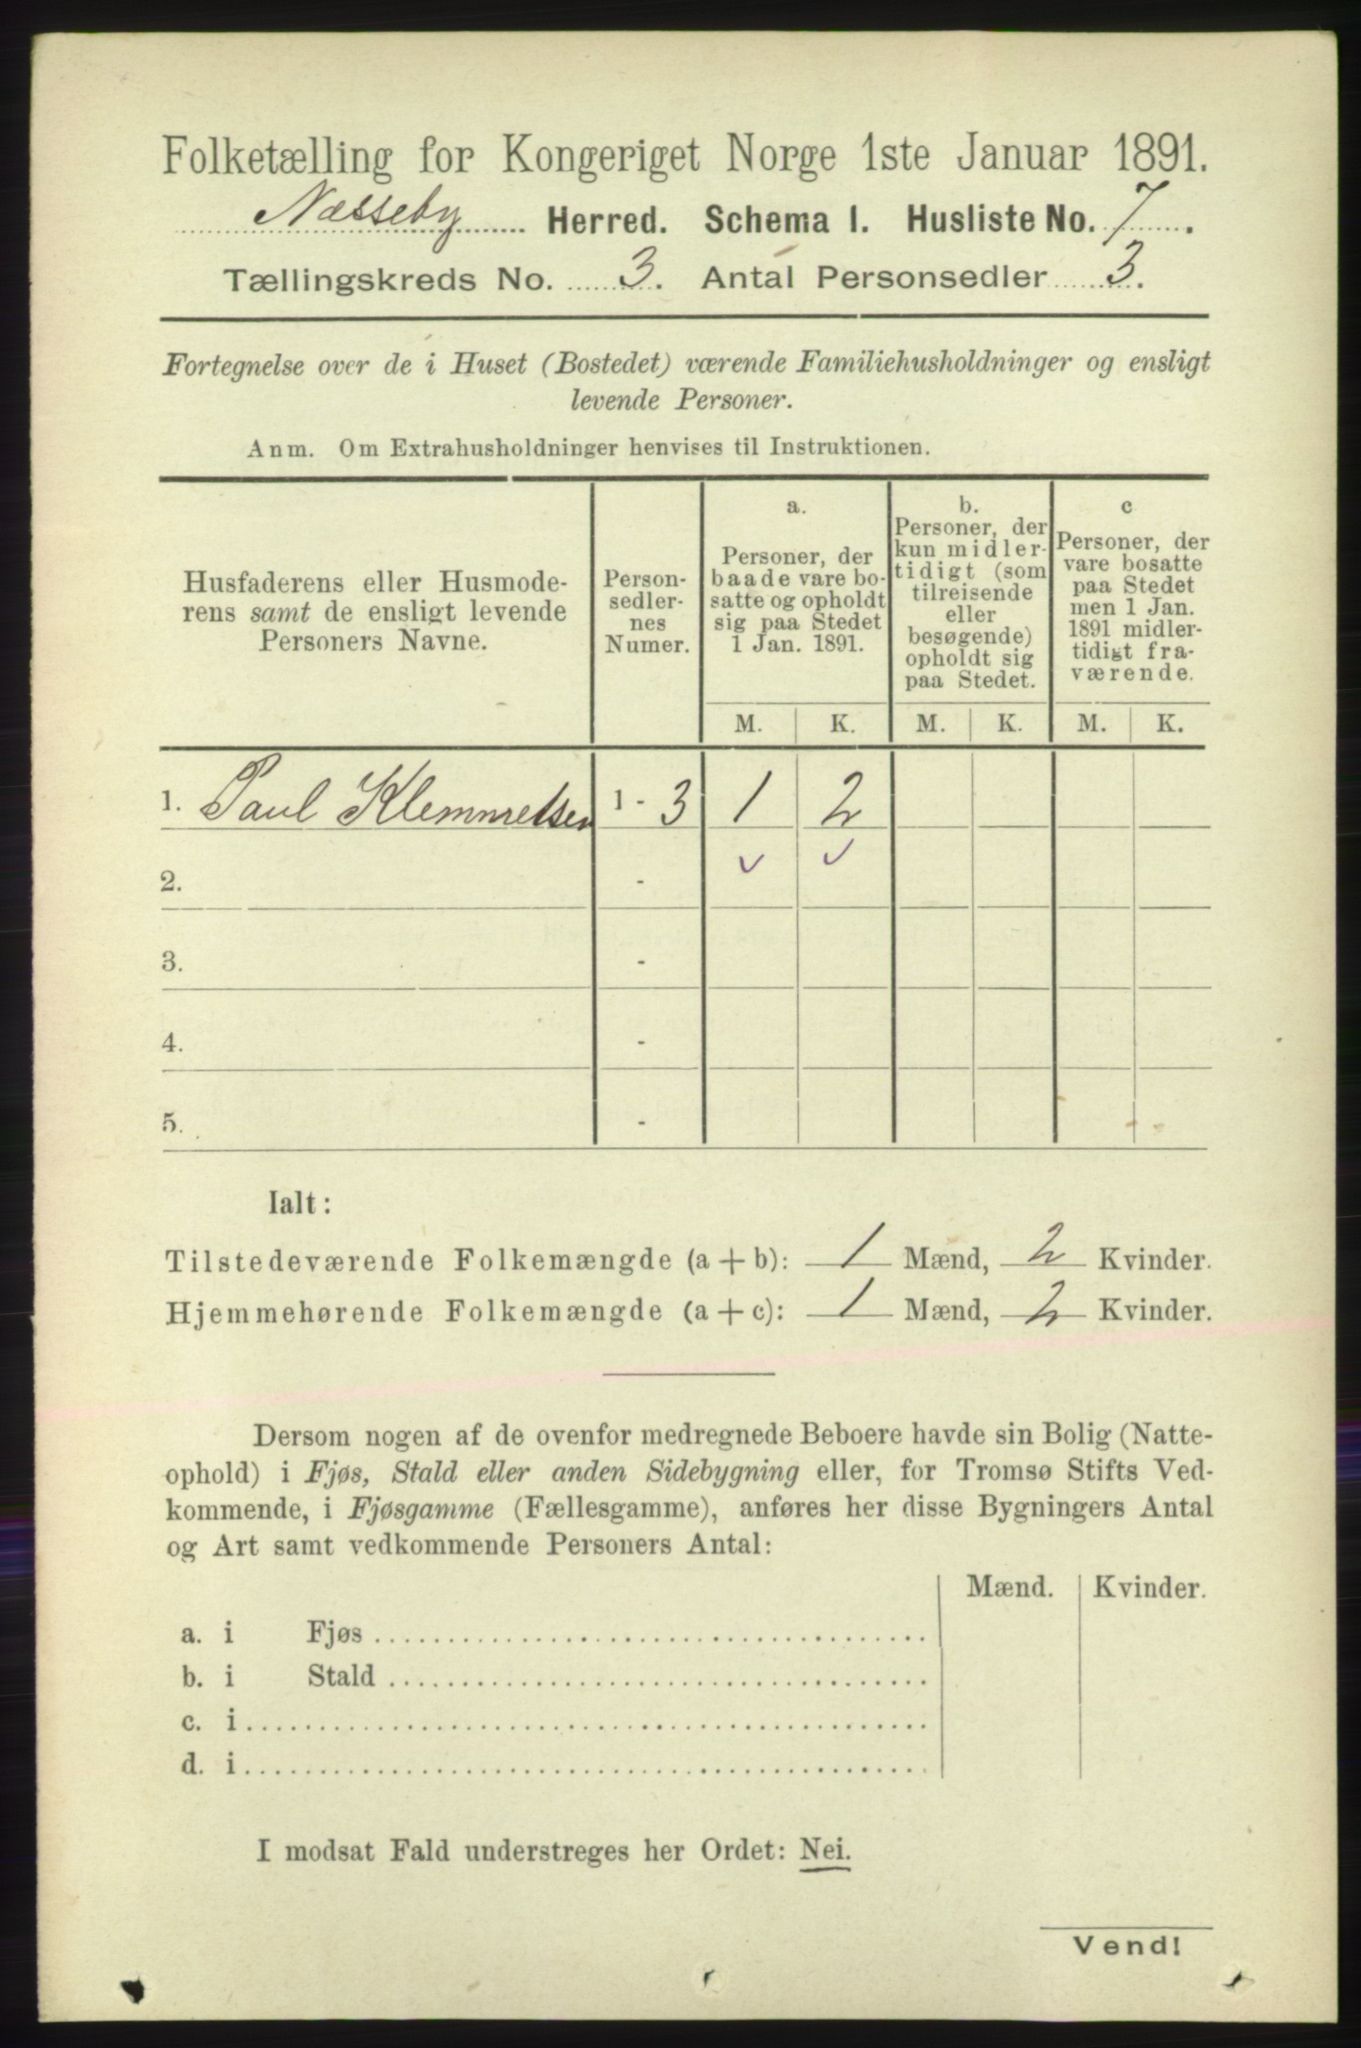 Folketælling for Kongeriget Norge 1ste Januar 1891.
Næsseby Herred. Schema I. Husliste No. 7.
Tællingskreds No. 3. Antal Personsedler 3.
Fortegnelse over de i Huset (Bostedet) værende Familiehusholdninger og ensligt
levende Personer.
Anm. Om Extrahusholdninger henvises til Instruktionen.
Husfaderens eller Husmode-
rens samt de ensligt levende
Personers Navne.
Person-
sedler-
nes
Numer.
a.
Personer, der
baade vare bo-
satte og opholdt
sig paa Stedet
1 Jan. 1891.
b.
Personer, der
kun midler-
tidigt (som
tilreisende
eller
besøgende)
opholdt sig
paa Stedet.
c
Personer, der
vare bosatte
paa Stedet
men 1 Jan.
1891 midler-
tidigt fra-
værende.
M. K. M. K. M. K.
1. Paul Klemmetsen 1 - 3 1 2
2. -
3. -
4. -
5. -
Ialt:
Tilstedeværende Folkemængde (a + b): 1 Mænd, 2 Kvinder.
Hjemmehørende Folkemængde (a + c): 1 Mænd, 2 Kvinder.
Dersom nogen af de ovenfor medregnede Beboere havde sin Bolig (Natte-
ophold) i Fjøs, Stald eller anden Sidebygning eller, for Tromsø Stifts Ved-
kommende, i Fjøsgamme (Fællesgamme), anføres her disse Bygningers Antal
og Art samt vedkommende Personers Antal:
Mænd. Kvinder.
a. i Fjøs
b. i Stald
c. i
d. i
I modsat Fald understreges her Ordet: Nei.
Vend!